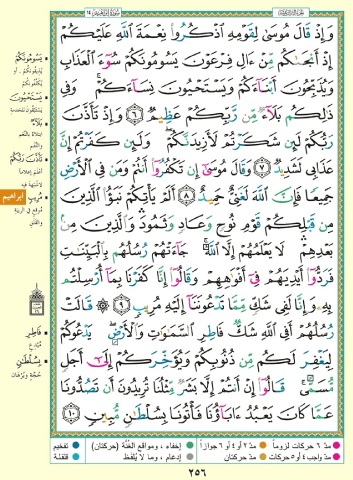 سُورَةُ إِبْرَاهِيم ١٤
وَإِذْ قَالَ مُوسَىٰ لِقَوْمِهِ ٱذْكُرُوا۟ نِعْمَةَ ٱللَّهِ عَلَيْكُمْ
إِذْ أَنجَىٰكُم مِّنْ ءَالِ فِرْعَوْنَ يَسُومُونَكُمْ سُوٓءَ ٱلْعَذَابِ
وَيُذَبِّحُونَ أَبْنَآءَكُمْ وَيَسْتَحْيُونَ نِسَآءَكُمْ ۚ وَفِى
ذَٰلِكُم بَلَآءٌ مِّن رَّبِّكُمْ عَظِيمٌ ٦ وَإِذْ تَأَذَّنَ
رَبُّكُمْ لَئِن شَكَرْتُمْ لَأَزِيدَنَّكُمْ ۖ وَلَئِن كَفَرْتُمْ إِنَّ
عَذَابِى لَشَدِيدٌ ٧ وَقَالَ مُوسَىٰٓ إِن تَكْفُرُوٓا۟ أَنتُمْ وَمَن فِى ٱلْأَرْضِ
جَمِيعًا فَإِنَّ ٱللَّهَ لَغَنِىٌّ حَمِيدٌ ٨ أَلَمْ يَأْتِكُمْ نَبَؤُا۟ ٱلَّذِينَ
مِن قَبْلِكُمْ قَوْمِ نُوحٍ وَعَادٍ وَثَمُودَ ۛ وَٱلَّذِينَ مِنۢ
بَعْدِهِمْ ۛ لَا يَعْلَمُهُمْ إِلَّا ٱللَّهُ ۚ جَآءَتْهُمْ رُسُلُهُم بِٱلْبَيِّنَـٰتِ
فَرَدُّوٓا۟ أَيْدِيَهُمْ فِىٓ أَفْوَٰهِهِمْ وَقَالُوٓا۟ إِنَّا كَفَرْنَا بِمَآ أُرْسِلْتُم
بِهِۦ وَإِنَّا لَفِى شَكٍّ مِّمَّا تَدْعُونَنَآ إِلَيْهِ مُرِيبٍ ٩ قَالَتْ
رُسُلُهُمْ أَفِى ٱللَّهِ شَكٌّ فَاطِرِ ٱلسَّمَـٰوَٰتِ وَٱلْأَرْضِ ۖ يَدْعُوكُمْ
لِيَغْفِرَ لَكُم مِّن ذُنُوبِكُمْ وَيُؤَخِّرَكُمْ إِلَىٰٓ أَجَلٍ
مُّسَمًّى ۚ قَالُوٓا۟ إِنْ أَنتُمْ إِلَّا بَشَرٌ مِّثْلُنَا تُرِيدُونَ أَن تَصُدُّونَا
عَمَّا كَانَ يَعْبُدُ ءَابَآؤُنَا فَأْتُونَا بِسُلْطَـٰنٍ مُّبِينٍ ١٠
يَسُومُونَكُمْ
يَسْتَحْيُونَ
بَلَاءٌ
تَأَذَّنَ رَبُّكُمْ
مُرِيبٍ
إبراهيم
فَاطِرِ
مُبْدِعِ
بِسُلْطَانٍ
حُجَّةٍ وَبُرْهَانٍ
مدّ ٦ حركات لزوماً
مدّ ٢ أو ٤ أو ٦ جوازاً
إخفاء، ومواقع الغُنَّة (حركتان)
تفخيم
مدّ واجب ٤ أو ٥ حركات
مدّ حركتان
إدغام، وما لا يُلفظ
قلقلة
٢٥٦